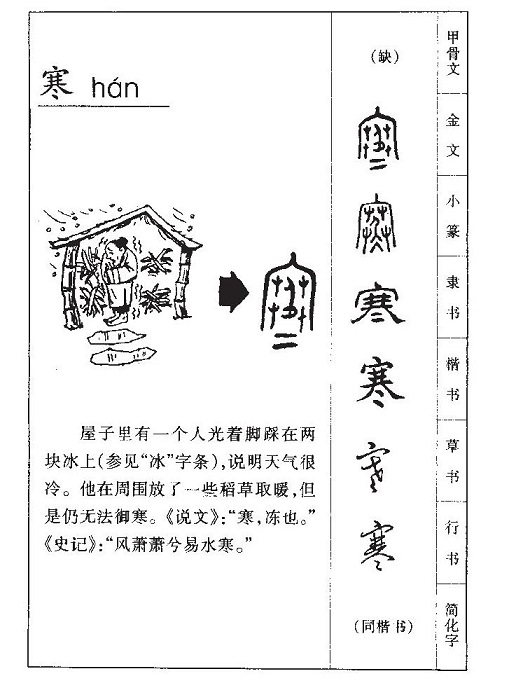 寒 hán
屋子里有一个人光着脚踩在两
块冰上(参见“冰”字条),说明天气很
冷。他在周围放了一些稻草取暖,但
是仍无法御寒。《说文》:“寒,冻也。”
《史记》:“风萧萧兮易水寒。”
(缺)
寒
寒
寒
寒
寒
寒
(同楷书)
甲骨文
金文
小篆
隶书
楷书
草书
行书
简化字